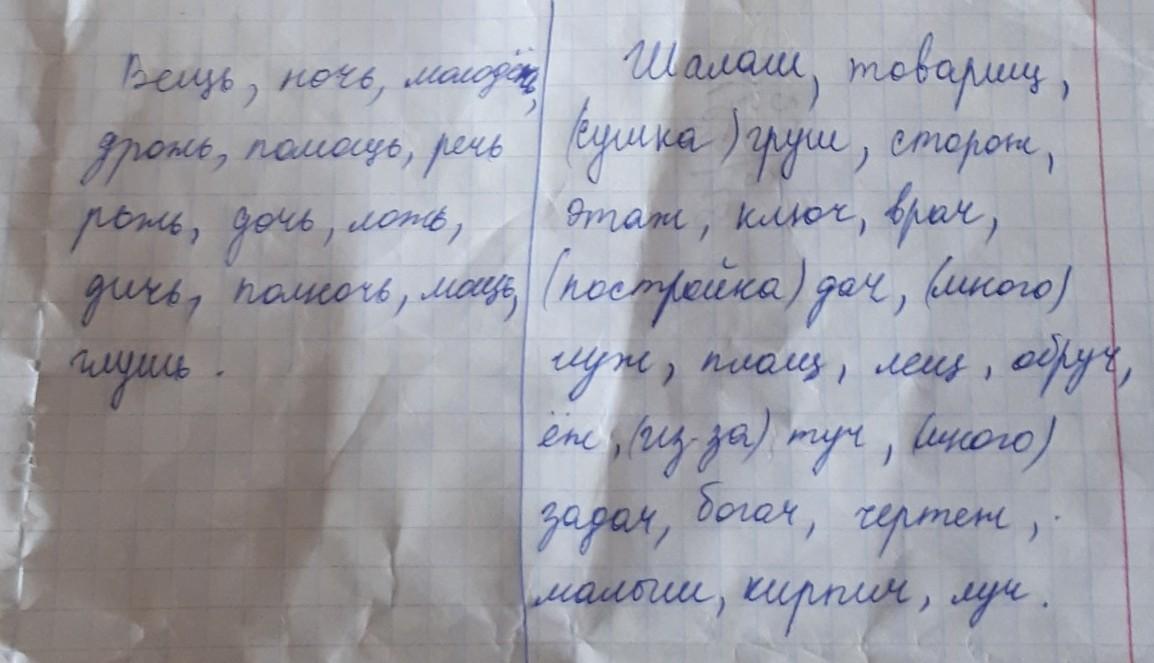 Вещь, ночь, молодёжь,
дрожь, помощь, речь
рожь, дочь, ложь,
дичь, полночь, мощь,
глушь.
Шалаш, товарищ,
(сушка) груш, сторож,
этаж, ключ, врач,
(постройка) дач, (много)
луж, плащ, лещ, обруч,
ёж, (из-за) туч, (много)
задач, богач, чертеж,
малыш, кирпич, луч.